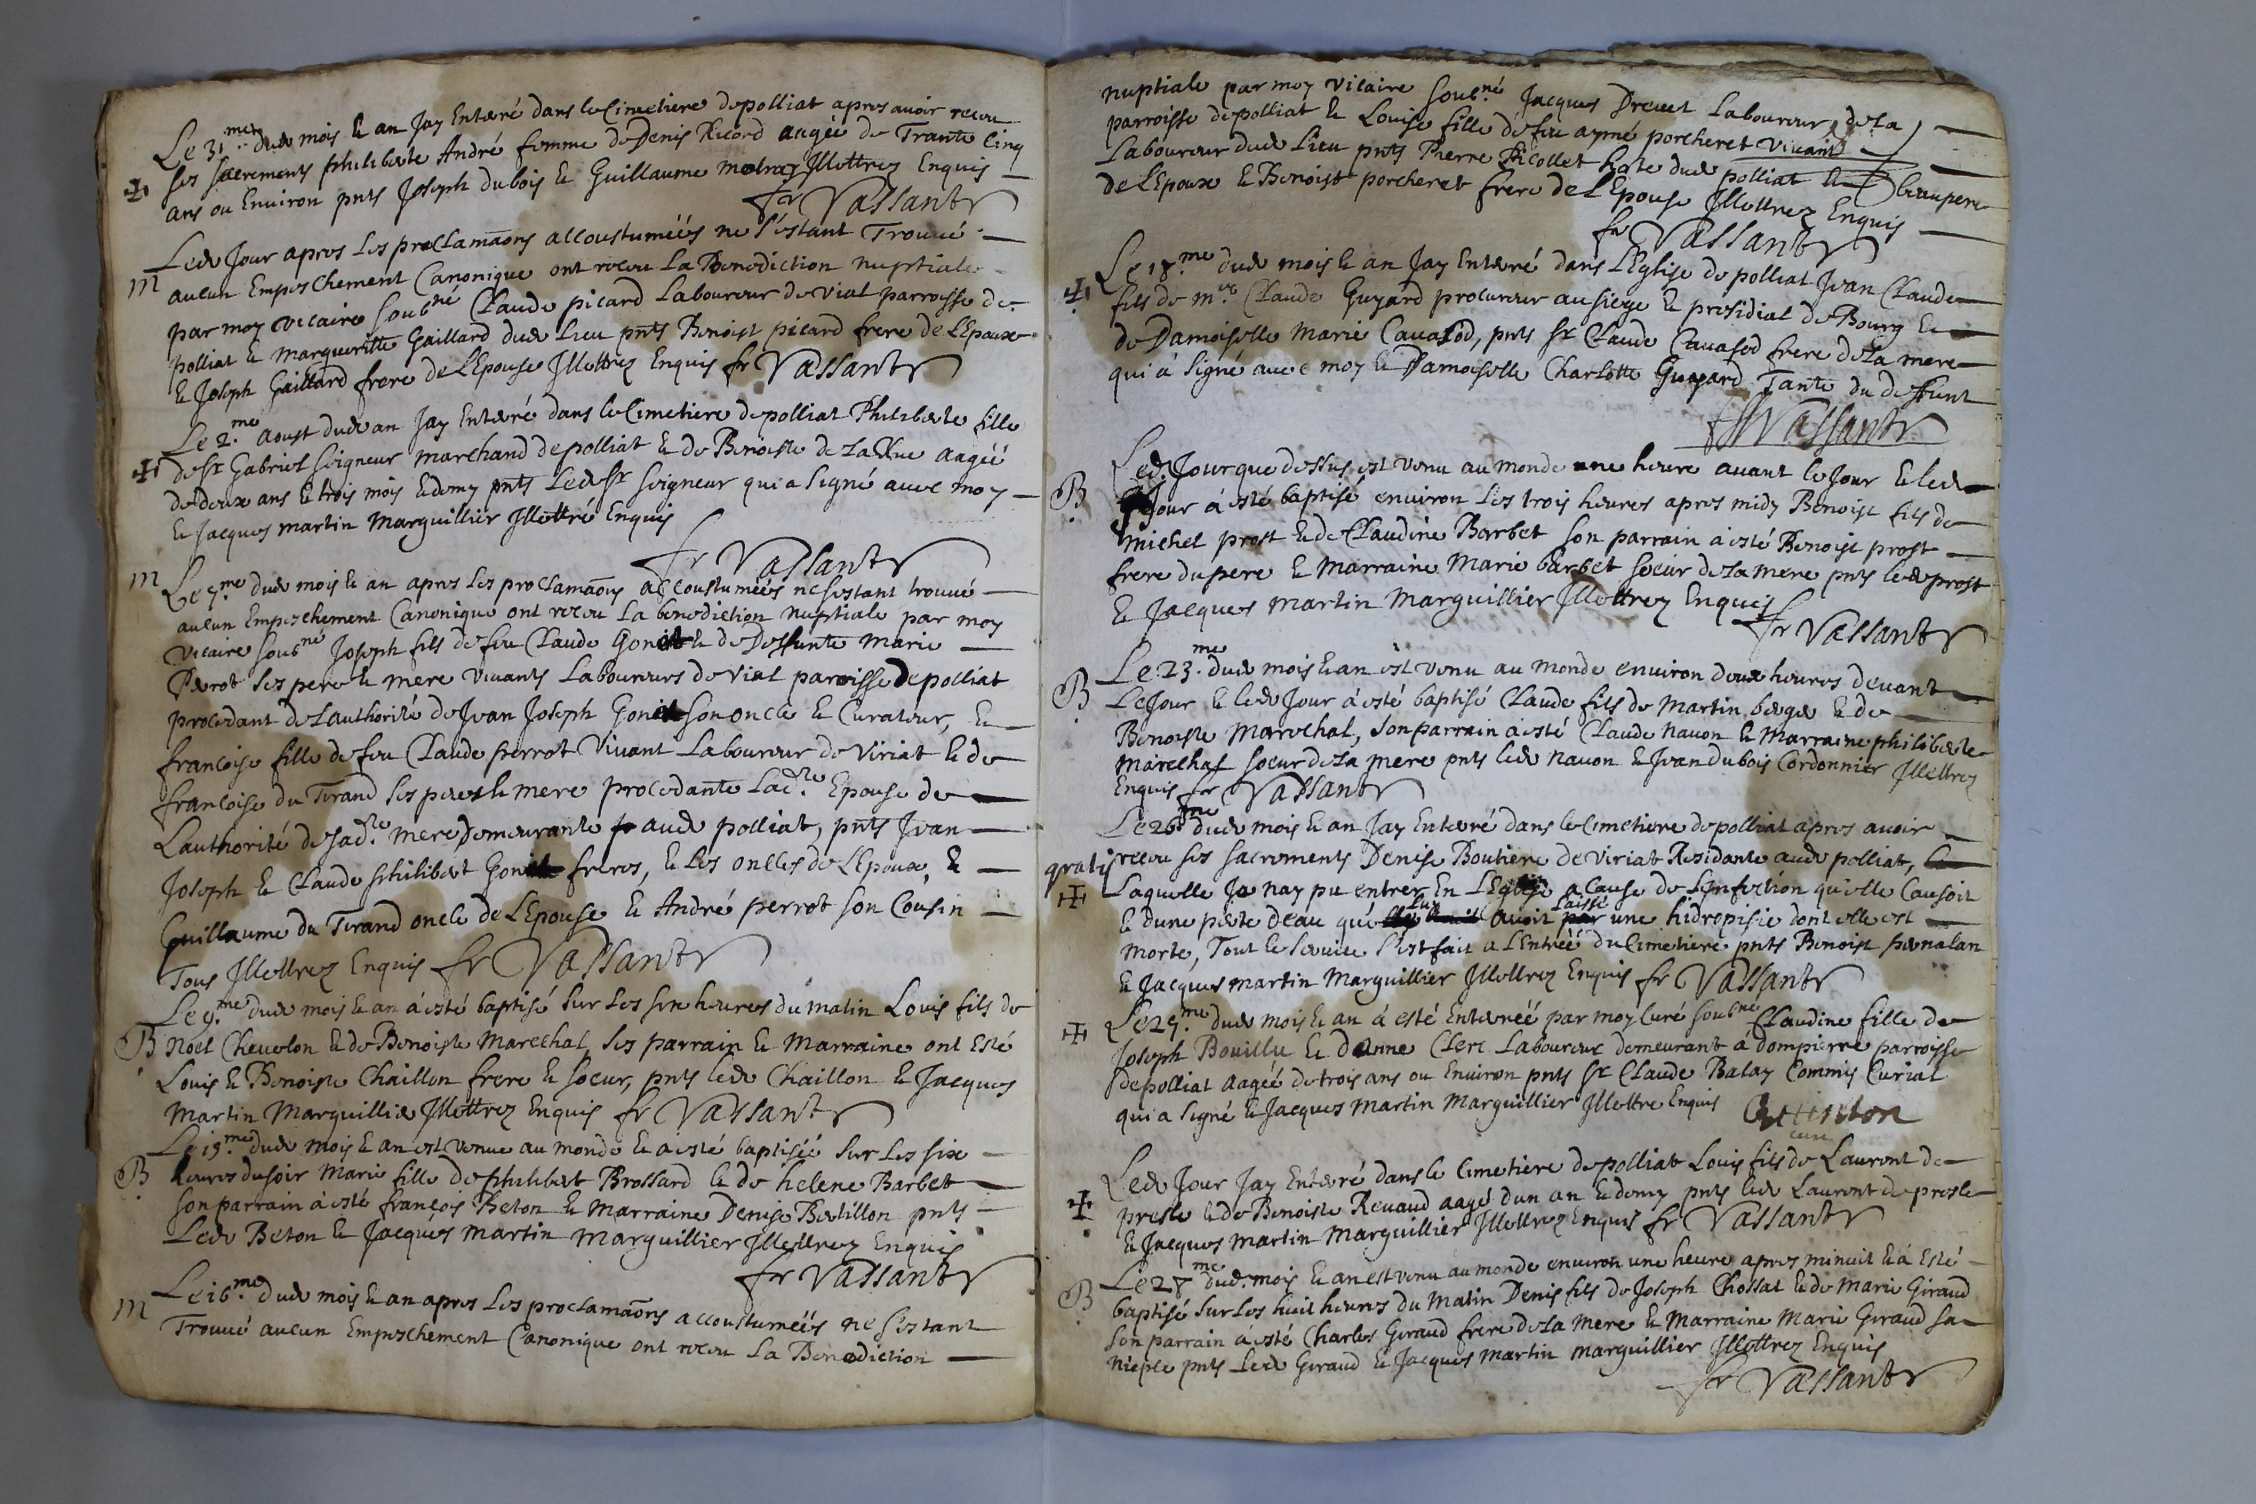 Le 31.me dud mois & an Jay Enterré dans le Cimetiere de polliat apres avoir receu
ses sacrements philiberte André femme de Denis Ricord aagée de Trante Cinq
ans ou Environ pnts Joseph dubois & Guillaume Illettrez Enquis
fr Vassant
Led Jour apres les proclamaons accoustumées ne s'éstant Trouué
M
aucun Empeschement Canonique ont receu La Benediction nuptiale
par moy vicaire soubné Claude picard Laboureur de Vial parroisse de
polliat & margueritte Gaillard dud Lieu pnts Benoist picard frere de L'Epoux
& Joseph Gaillard frere de L'Epouse Illettrez Enquis fr Vassant
Le 2.me Aoust dud an Jay Enterré dans le Cimetiere de polliat Philiberte fille
de Sr Gabriel seigneur marchand de polliat & de Benoiste de la Rue aagéé
de deux ans & trois mois & demy pnts Led Sr seigneur qui a signé avec moy
& Jacques martin Marguillier Illettré Enquis
fr Vassant
M
Le 7.me dud mois & an apres les proclamaons accoustumées ne sestant trouué
aucun Empeschement Canonique ont receu La benediction nuptiale par moy
vicaire soubné Joseph fils de feu Claude & de Deffunte Marie
Perrot ses pere & mere vivants Laboureurs de Vial paroisse de polliat
procedant de Lauthorité de Jean Joseph son oncle & Curateur, &
francoise fille de feu Claude perrot Vivant Laboureur de Viriat & de
francoise du Tirand ses pere & mere procedante Ladte Epouse de
Lauthorité de sadte mere Demeurante aud polliat, pnts Jean
Joseph & Claude philibert freres, & les oncles de L'Epoux, &
Guillaume du Tirand oncle de L'Epouse & André perrot son Cousin
Tous Illettrez Enquis fr Vassant
Le 9.me dud mois & an à ésté baptisé sur les sept heures du matin Louis fils de
B
Noel Chevelon & de Benoiste Marechal, ses parrain & Marraine ont Esté
Louis & Benoiste Chaillon frere & soeur, pnts led Chaillon & Jacques
Martin Marguillier Illettrez Enquis fr Vassant
Le 19.me dud mois & an est venue au monde & a ésté baptiséé sur les six
B
heures du soir Marie fille de philibert Brossard & de helene Barbet
son parrain à ésté françois Beton & Marraine Denise Bertillon pnts
Led Beton & Jacques Martin Marguillier Illettrez Enquis
fr Vassant
Le 16.me dud mois & an apres les proclamaons accoustuméés ne sestant
M
Trouué aucun Empeschement Canonique ont receu La Benediction
nuptiale par moy vicaire soubné Jacques Drevet Laboureur de la
parroisse de polliat & Louise fille de feu aymé porcheret vivant
Laboureur dud Lieu pnts Pierre Picollet hoste dud polliat beaupere
de L'Epoux & Benoist porcheret frere de L'Epouse Illettrez Enquis
fr Vassant
Le 18.me dud mois & an Jay Enterré dans L'Eglise de polliat Jean Claude
fils de mre Claude Guyard procureur au siege & presidial de Bourg &
de Damoiselle Marie Cavasod, pnts Sr Claude Cavasod frere de la mere
qui à signé avec moy & Damoiselle Charlotte Guyard Tante du deffunt
fr Vassant
Led. Jour que dessus est venu au monde une heure avant le Jour & led
B
Jour à ésté baptisé environ les trois heures apres midy Benoist fils de
michel prost & de Claudine Barbet son parrain à ésté Benoist prost
frere du pere & Marraine Marie barbet soeur de la mere pnts led prost
& Jacques martin Marguillier Illettrez Enquis
fr Vassant
Le 23.me dud mois & an est venu au monde environ deux heures devant
B
Le Jour & led Jour à ésté baptisé Claude fils de Martin & de
Benoiste Marechal, son parrain à ésté Claude navon & Marraine philiberte
marechal soeur de la mere pnts led navon & Jean dubois Cordonnier Illettrez
Enquis fr Vassant
Le 26.me dud mois & an Jay Enterré dans le Cimetiere de polliat apres avoir
gratis
receu ses sacrements Denise Boutiere de Viriat Residante aud polliat,
Laquelle Je nay pu entrer En L'Eglise a Cause de Linfection quelle Causoit
& dune perte deau que luy avoit laissé une hidropisie dont elle est
morte, Tout le service s'est fait a L'Entréé du Cimetiere pnts Benoist
& Jacques martin Marguillier Illettrez Enquis fr Vassant
Le 27.me dud mois & an à esté Enterréé par moy Curé soubné Claudine fille de
Joseph Bouillu & danne Clerc Laboureur demeurant a dompierre parroisse
de polliat Aagéé de trois ans ou Environ pnts Sr Claude Balay Commis Curial
qui a signé & Jacques Martin Marguillier Illettre Enquis
curé
Led Jour Jay Enterré dans le Cimetiere de polliat Louis fils de Laurent de
presle & de Benoiste Revaud aagé dun an & demy pnts led Laurent de presle
& Jacques Martin Marguillier Illettrez Enquis fr Vassant
Le 28.me dud. mois & an est venu au monde environ une heure apres minuit & à Esté
B
baptisé sur les huit heures du Matin Denis fils de Joseph Chossat & de Marie Giraud
son parrain a ésté Charles Giraud frere de la Mere & Marraine Marie Giraud sa
niepce pnts Led Giraud & Jacques Martin marguillier Illettrez Enquis
fr Vassant